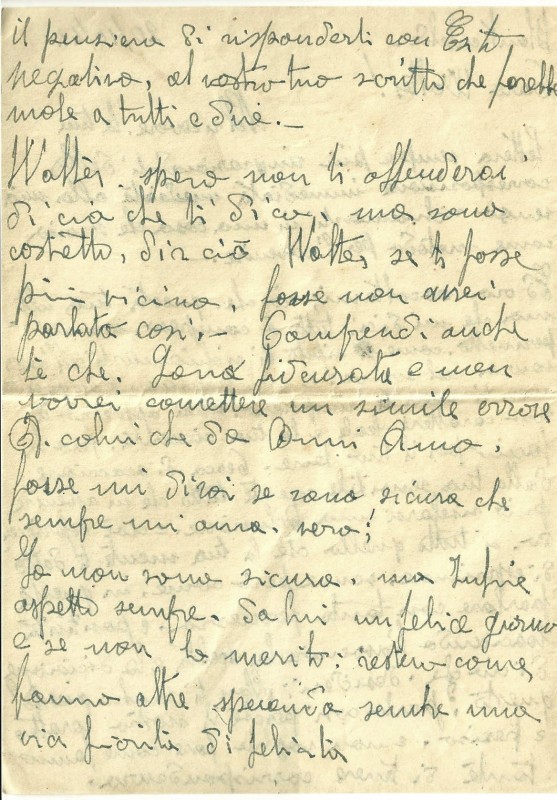 il pensiero di risponderti con Esito
negativo, al vostro tuo scritto che farebbe
male a tutti e due. —
Walter, spero non ti offenderai
di ciò che ti dico, ma sono
costretto, dir ciò Walter, se ti fosse
più vicino, forse non avrei
parlato così. — Comprendi anche
te che. Sono fidenzata e non
vorrei comettere un simile errore
A. colui che da Anni Amo.
forse mi dirai se sono sicura che
sempre mi ama. vero!
Io non sono sicura. ma
aspetto sempre. da lui un felice giorno
e se non lo merito: resterò come
fanno altre sperando sempre una
via fiorita di felicità